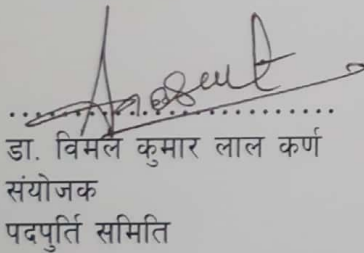 डा. विमल कुमार लाल कर्ण
संयोजक
पदपुर्ति समिति